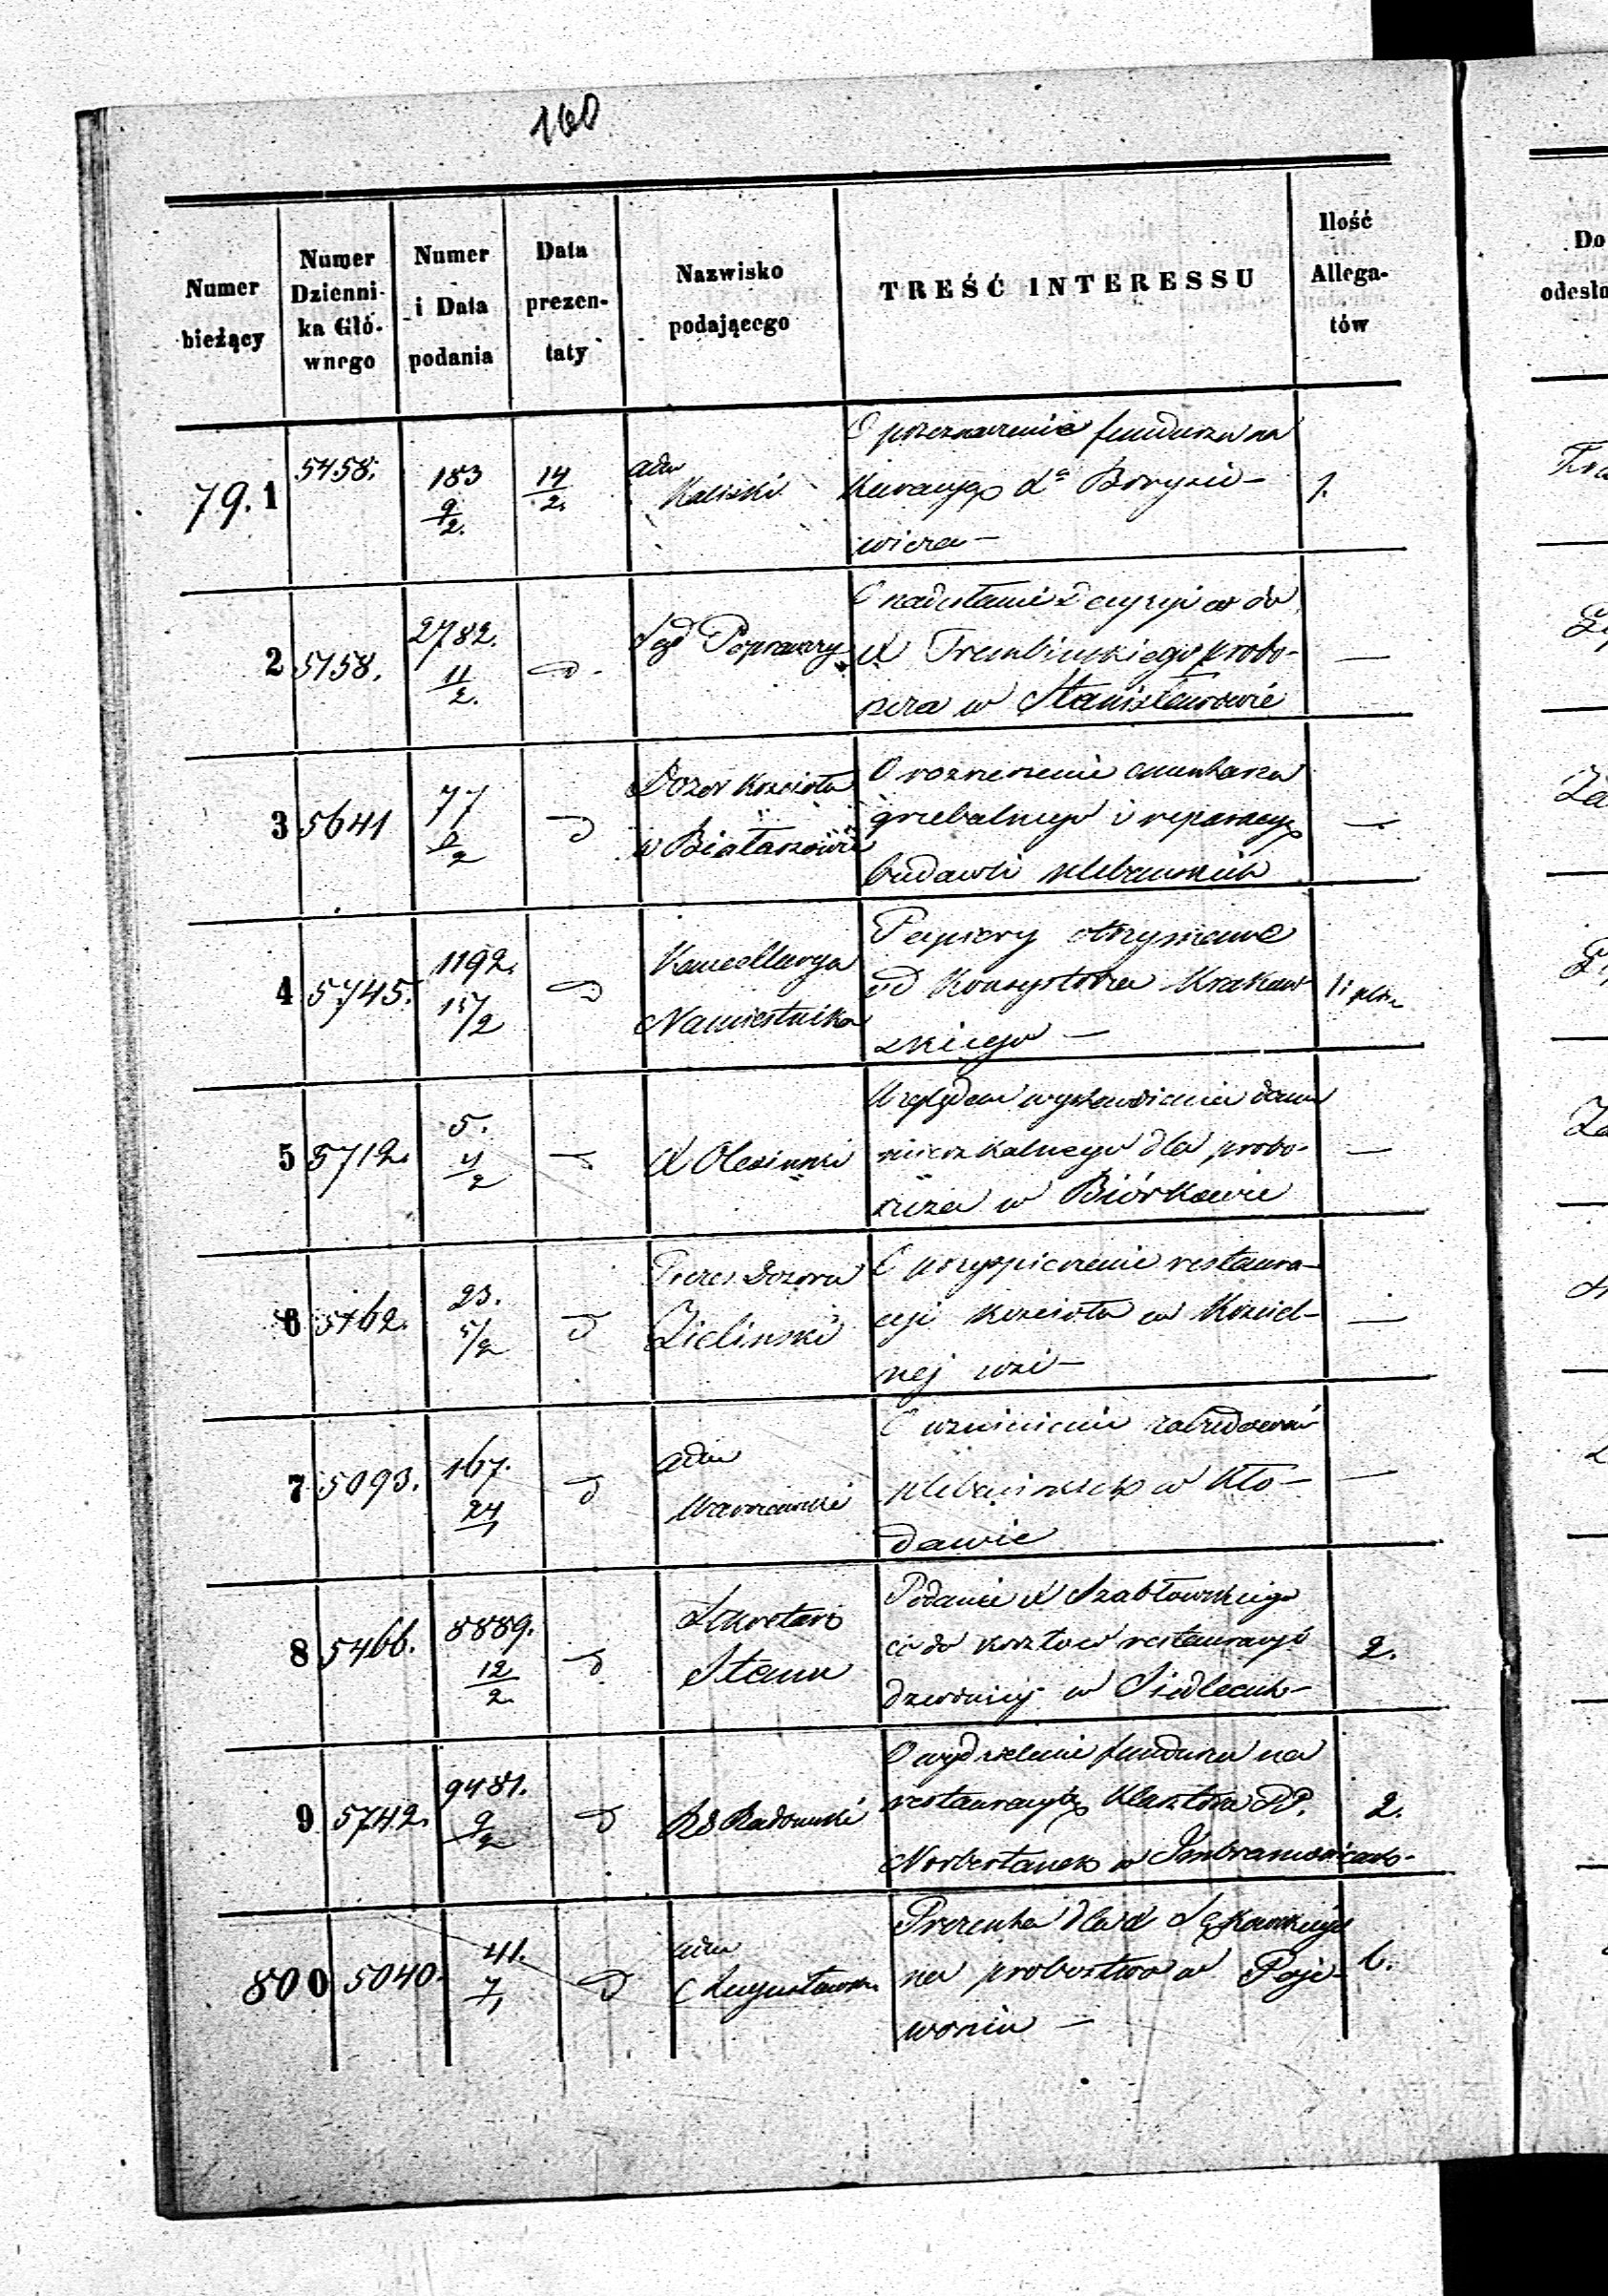 160
Numer bieżący
Numer Dzienni-ka Głó-wnego
Numer i Data podania
Data prezen-taty
Nazwisko podającego
TREŚĆ INTERESSU
Ilość Allega-tów
Do
odesła
79.1 5458. 183 9/2. 14/2. adm Kaliski
O przeznaczenie funduszu na
Kuracyą Xa Borysie-
wicza —
1.
2 5158. 2782. 11/2. d Sąd Poprawczy
O nadesłanie Decyzyi co do
X Trembinskiego probo-
szcza w Stanisławowie
—
3 5641 77 d
Dozor Kościoła
w Białaszowie
O rozszerzenie cmentarza
grzebalnego i reparacyą
budowli plebańskich
—
4 5745. 1192. 15/2 d
Kancellarya
Namiestnika
Papiery otrzymane
od Konsystorza Krakow
skiego —
5 5712. 5. 4/2 d
X Olesinski
Względem wystawienia domu
mieszkalnego dla probo-
szcza w Biórkowie
—
6 5162. 23. 5/2 d
Prezes Dozoru
Zielinski
O przyspieszenie restaura-
cyi kościoła w Kościel-
nej wsi —
—
7 5093. 167. 24/1 d
adm
Warszawski
O wzniesienie zabudowań
plebańskich w Kło-
dawie
—
8 5466. 8889. 12/2. d
Sekretarz
Stanu
Podanie X Szabłowskiego
co do kosztów restauracyi
dzwonicy w Siedlcach —
2.
9 5742. 9481. 9/2 d
RG Radomski
O wydzielenie funduszu na
restauracyą Klasztoru PP.
Norbertanek w Imbramowicach -
2.
800 5040. 41. 7/1 d
adm
Augustowski
Prezenta dla X Sękowskiego
na probostwo w Poje-
woniu —
6.